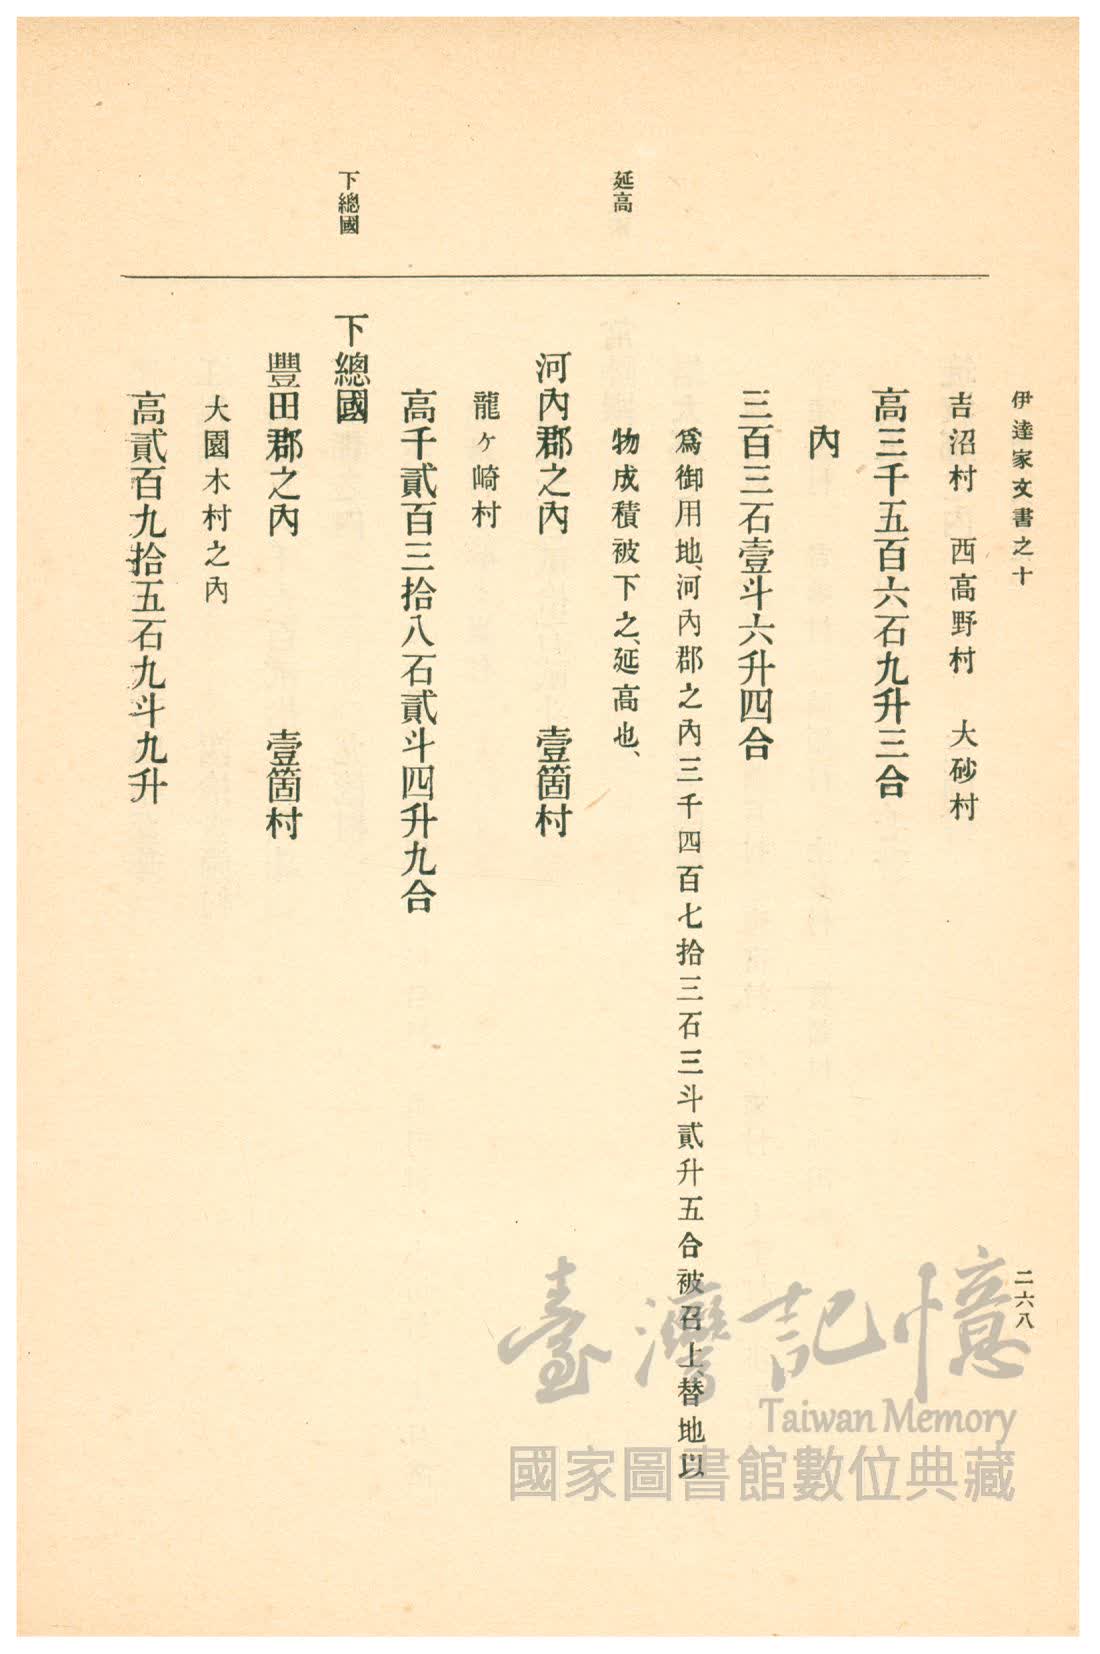 伊達家文書之十
二六八
吉沼村　西高野村　大砂村
高三千五百六石九升三合
內
三百三石壹斗六升四合
延高
爲御用地、河內郡之內三千四百七拾三石三斗貳升五合被召上、替地以
物成積被下之、延高也、
河內郡之內　壹箇村
龍ヶ崎村
高千貳百三拾八石貳斗四升九合
下總國
下總國
豐田郡之內　壹箇村
大園木村之內
高貳百九拾五石九斗九升
臺灣記憶
Taiwan Memory
國家圖書館數位典藏